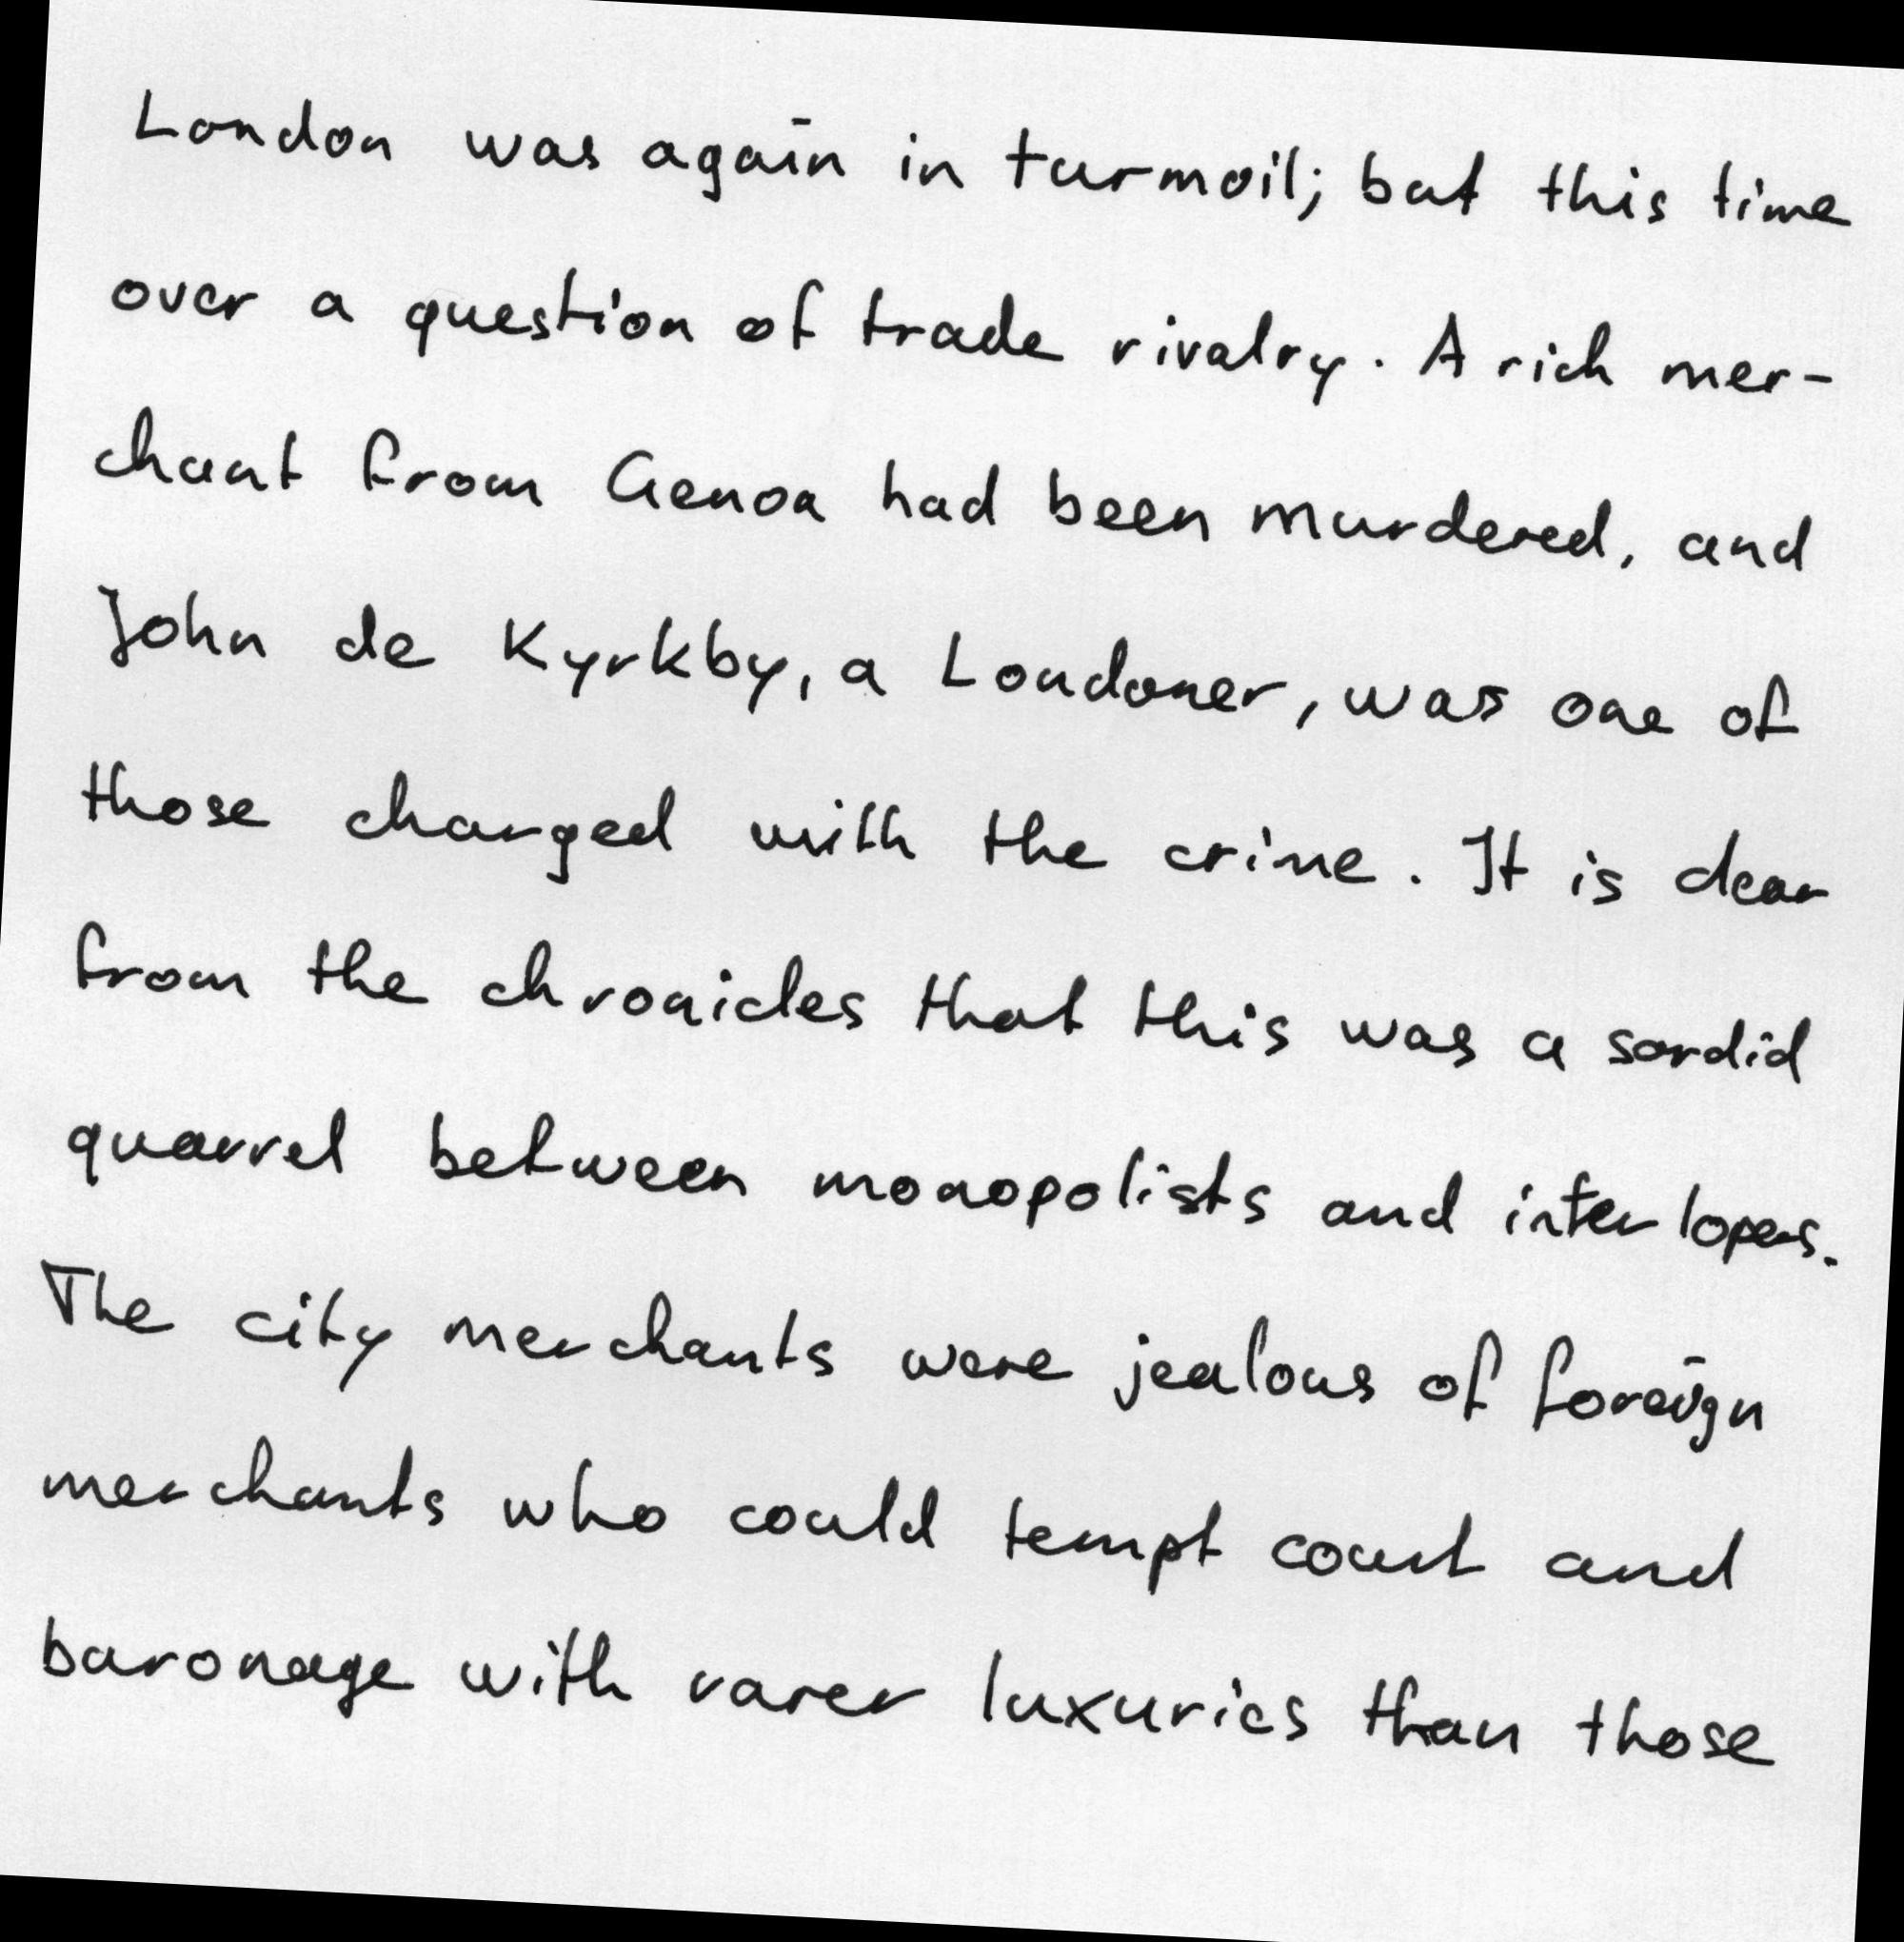 London was again in turmoil; but this time
over a question of trade rivalry. A rich mer-
chant from Genoa had been murdered, and
John de Kyrkby, a Londoner, was one of
those charged with the crime. It is clear
from the chronicles that this was a sordid
quarrel between monopolists and interlopers.
The city merchants were jealous of foreign
merchants who could tempt court and
baronage with rarer luxuries than those